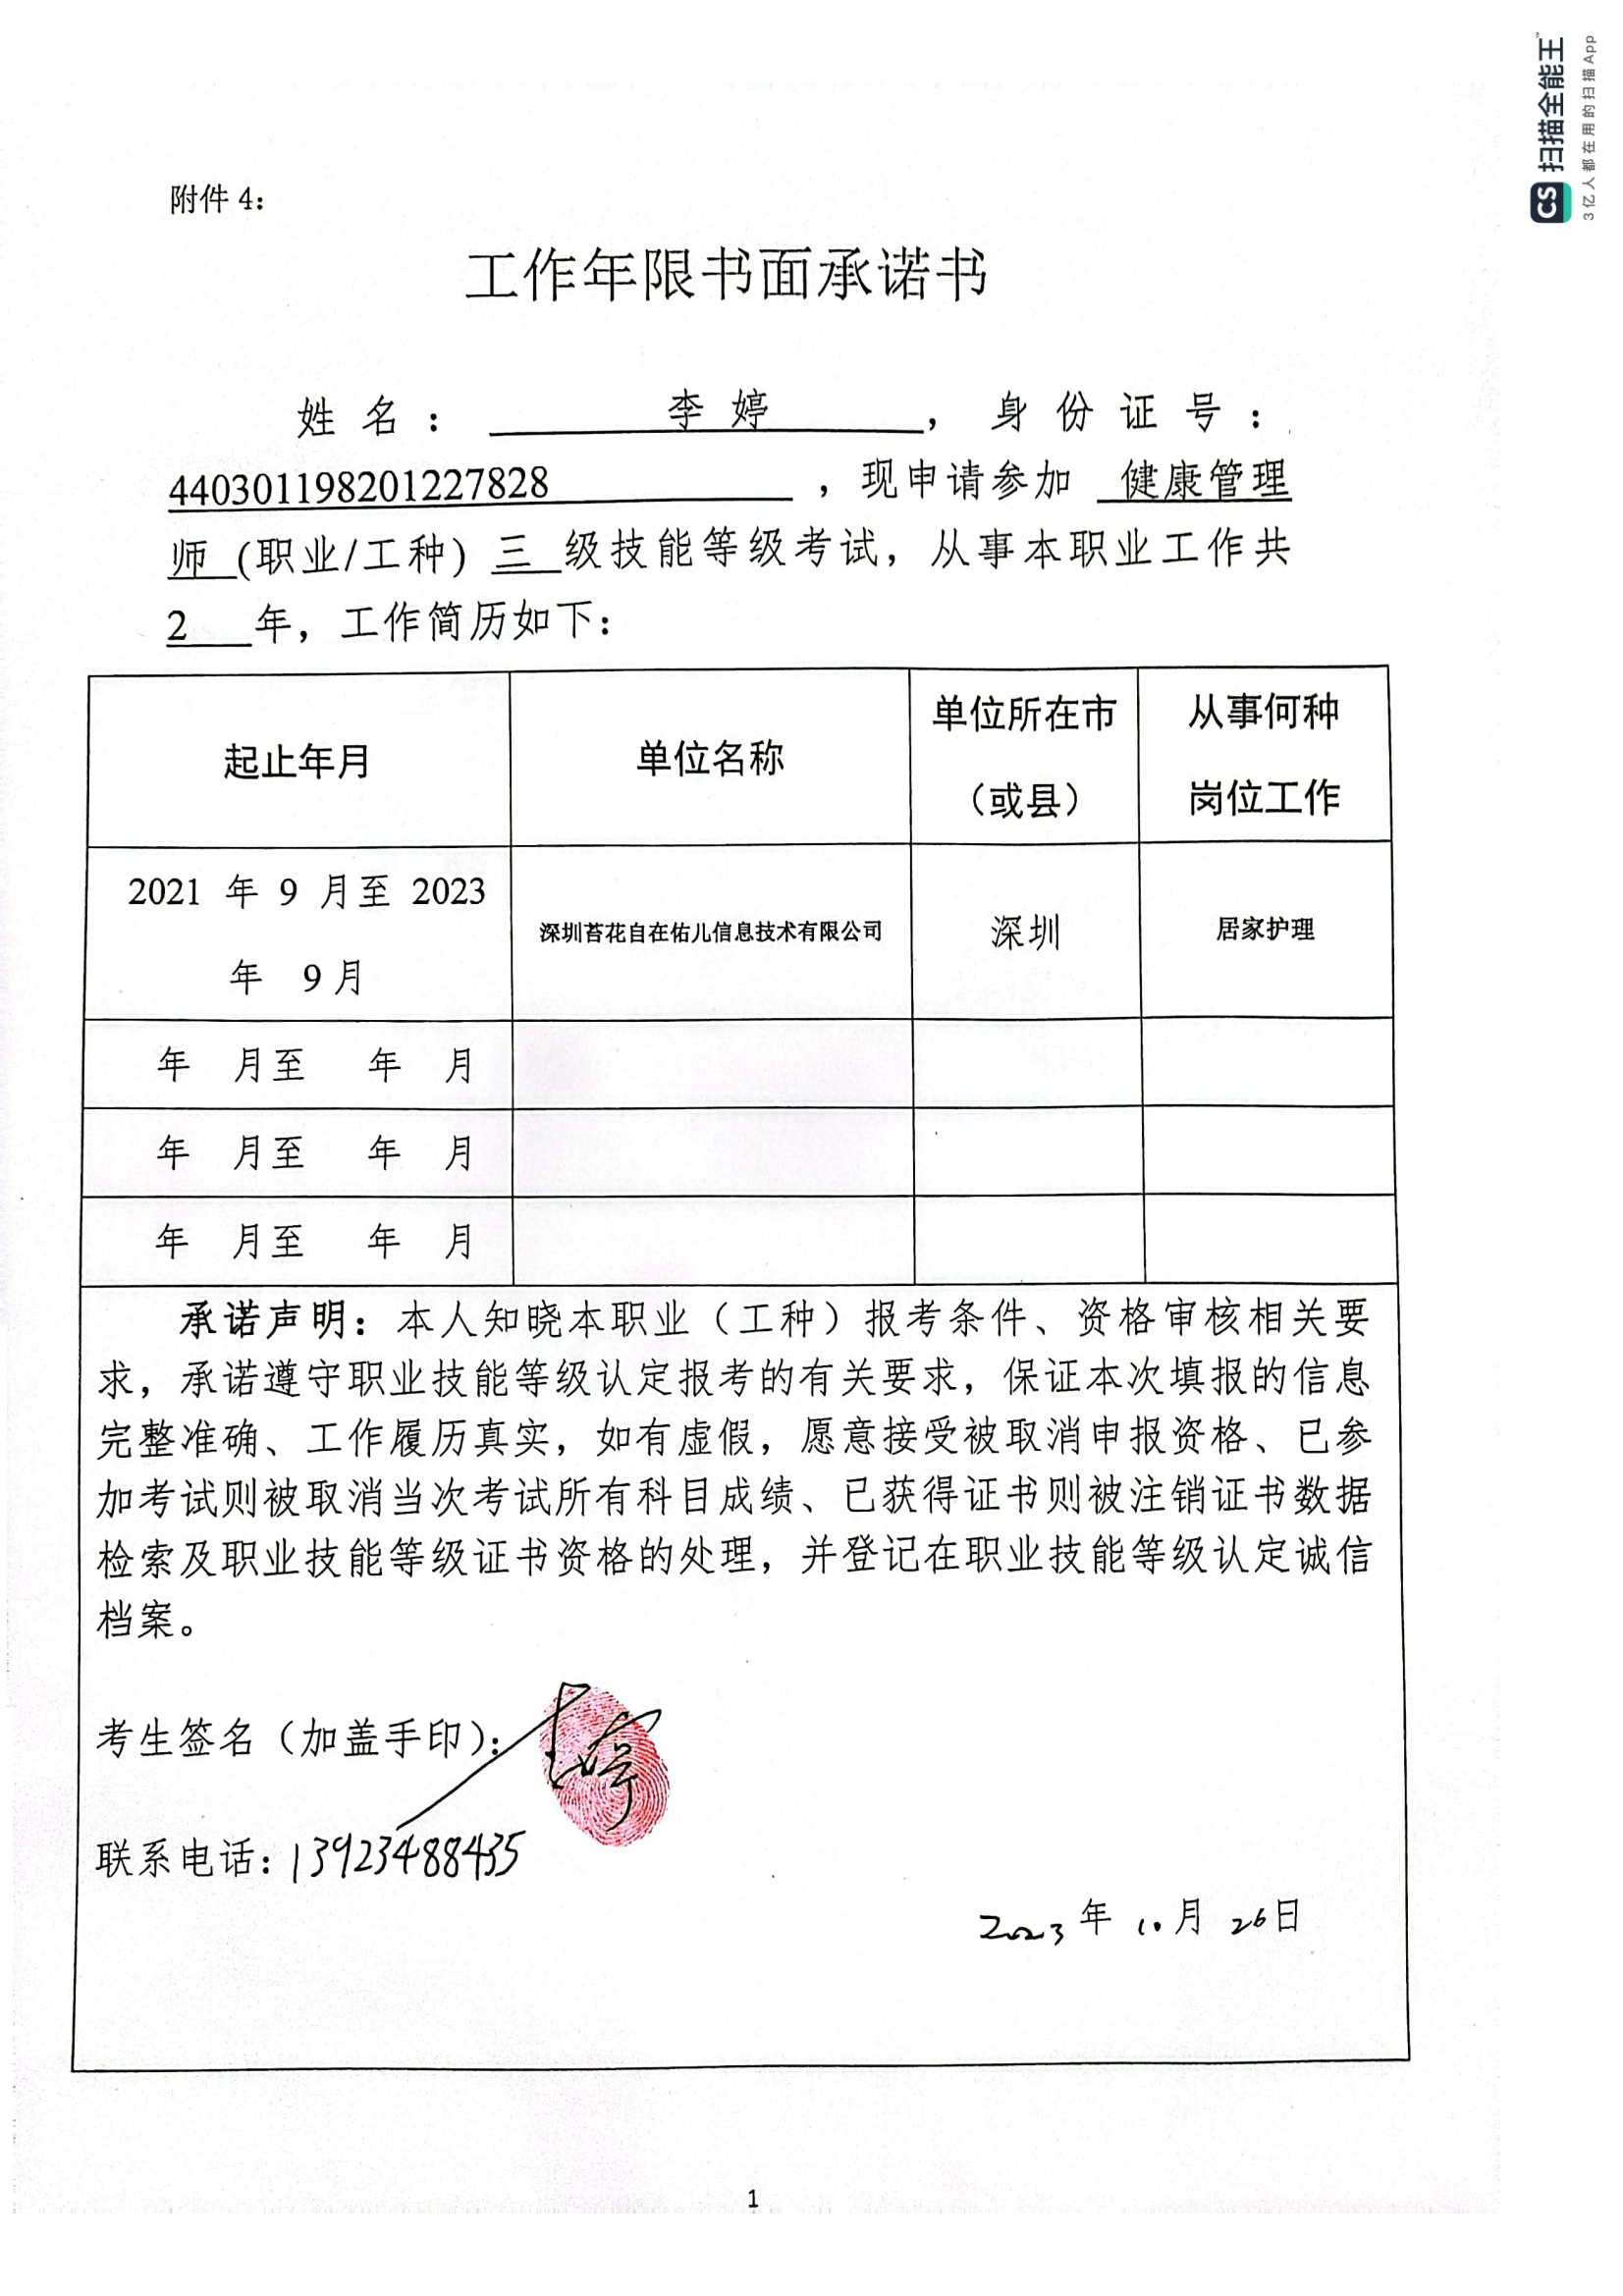 CS 扫描全能王
3亿人都在用的扫描App
附件 4:
工作年限书面承诺书
姓名： 李婷 ，身份证号：
440301198201227828 ，现申请参加 健康管理
师 (职业/工种) 三 级技能等级考试，从事本职业工作共
2 年，工作简历如下：
起止年月 单位名称 单位所在市（或县） 从事何种岗位工作
2021 年 9 月至 2023 年 9 月 深圳苔花自在佑儿信息技术有限公司 深圳 居家护理
年 月至 年 月
年 月至 年 月
年 月至 年 月
承诺声明：本人知晓本职业（工种）报考条件、资格审核相关要
求，承诺遵守职业技能等级认定报考的有关要求，保证本次填报的信息
完整准确、工作履历真实，如有虚假，愿意接受被取消申报资格、已参
加考试则被取消当次考试所有科目成绩、已获得证书则被注销证书数据
检索及职业技能等级证书资格的处理，并登记在职业技能等级认定诚信
档案。
考生签名（加盖手印）：李婷
联系电话：13923488435
2023 年 10 月 26 日
1